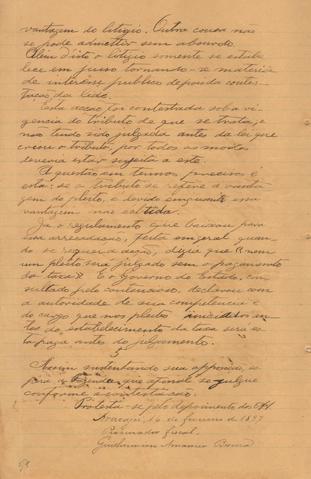 vantagem do litigio. Outra cousa não
se pode admittir sem absurdo.
Além disto o litigio somente se estabe
lece em juizo tornando-se materia
de interesse publico depois da contes-
tação da lide.
Esta acção foi contestada sob a vi-
gencia do tributo de que se trata, e
não tendo sido julgada antes da lei que
creou o tributo, por todos os modos
deveria estar sujeita a este.
A questão em termos precisos é
esta: se o tributo se refere á vanta
gem do pleito, é devido emquanto essa
vantagem não está
Já o regulamento que baixou para
sua arrecadação, feita em geral quan
do se requer a acção, dizia que "nem
um pleito será julgado sem o pagamento
da taxa". E o Governo do Estado, con
sultado pelo contencioso, declarou com
a autoridade de sua competencia e
do cargo que nos pleitos
do estabelecimento da taxa será es
ta paga antes do julgamento.
5
Assim sustentando sua opposição, se
para a Fazenda, que afinal se julgue
conforme a contestação.
Protesta-se pelo depoimento do
Aracajú, 16 de fevereiro de 1897
Procurador fiscal,
Guilherme Amancio